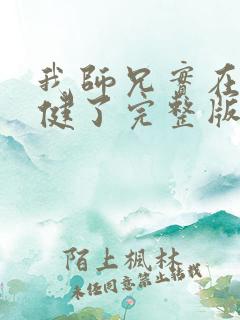 我師兄實在
健了完整版
陌上楓林
未经同意禁止转载